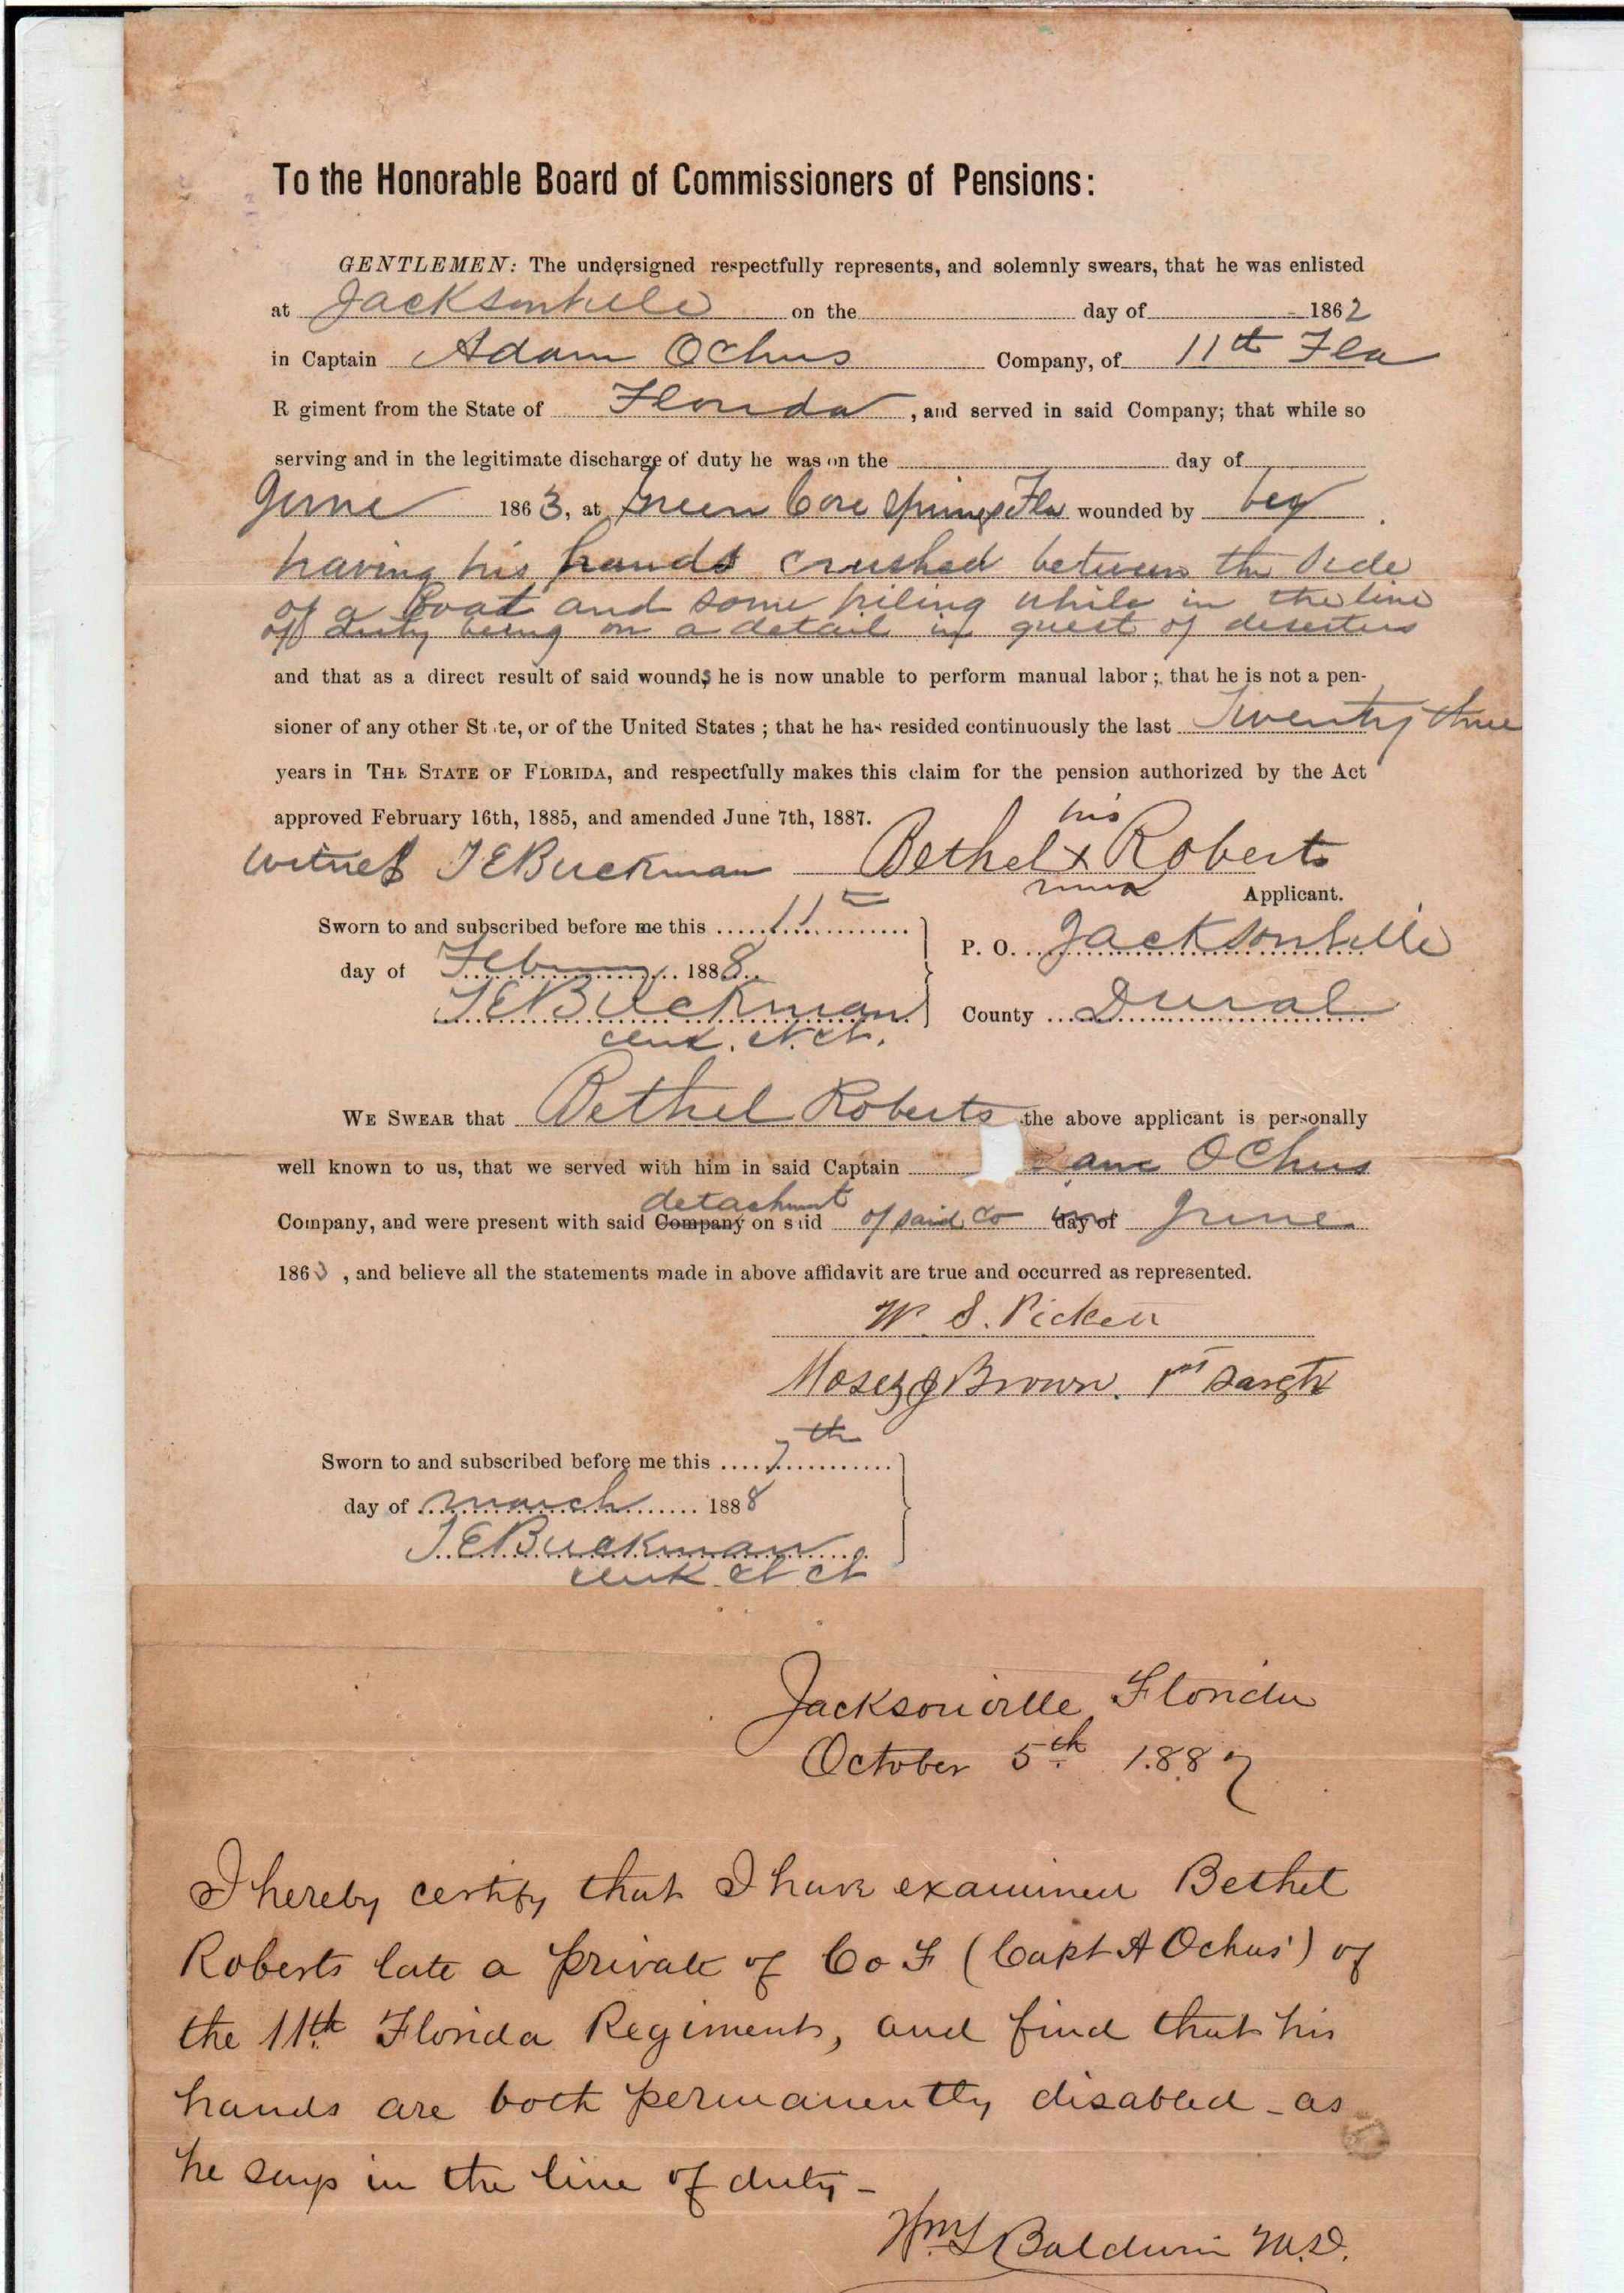 To the Honorable Board of Commissioners of Pensions:
GENTLEMEN: The undersigned respectfully represents, and solemnly swears, that he was enlisted
at Jacksonville on the day of 1862
in Captain Adam Ochus Company, of 11th Fla
R giment from the State of Florida, and served in said Company; that while so
serving and in the legitimate discharge of duty he was on the day of
June 1863, at Green Cove Springs Fla wounded by
having his hands crushed between the side
of a boat and some piling while in the line
of duty being on a detail in quest of deserters
and that as a direct result of said wounds he is now unable to perform manual labor; that he is not a pen-
sioner of any other St te, or of the United States; that he has resided continuously the last Twenty three
years in THE STATE OF FLORIDA, and respectfully makes this claim for the pension authorized by the Act
approved February 16th, 1885, and amended June 7th, 1887.
his
Witness T E Buckman Bethel x Roberts
mark Applicant.
Sworn to and subscribed before me this 11th
P. O. Jacksonville
day of February 1888
T E Buckman County Duval
Clerk. Ct. Ct.
WE SWEAR that Bethel Roberts the above applicant is personally
well known to us, that we served with him in said Captain Ochus
detachment
Company, and were present with said Company on s id of said Co day of June
1863, and believe all the statements made in above affidavit are true and occurred as represented.
W. S. Pickett
Moses J Brown. 1st Sargt
Sworn to and subscribed before me this 7th
day of March 1888
T E Buckman
Clerk Ct Ct
Jacksonville, Florida
October 5th 1887
I hereby certify that I have examined Bethel
Roberts late a private of Co F (Capt A Ochus') of
the 11th Florida Regiment, and find that his
hands are both permanently disabled - as
he says in the line of duty -
Wm L Baldwin M.D.